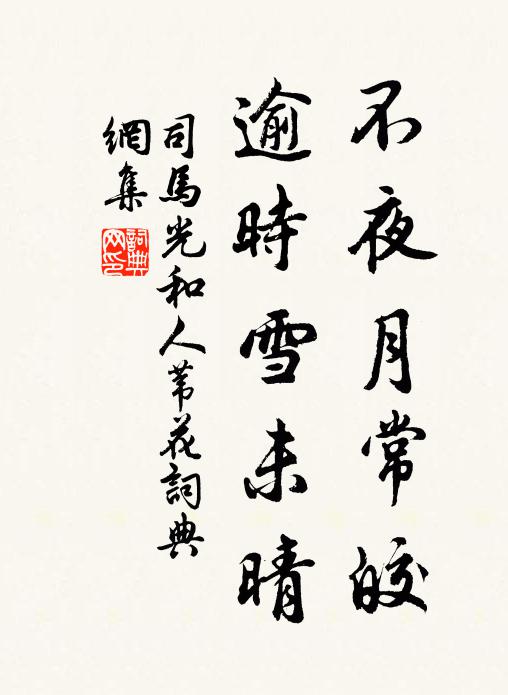 不夜月常皎
逾時雪未晴
司馬光和人葦花詞典
網集
詞典
网印